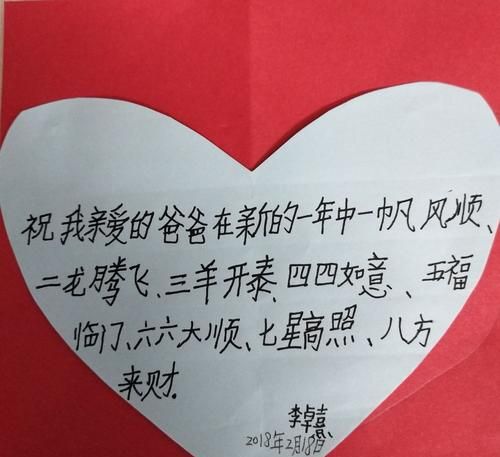 祝我亲爱的爸爸在新的一年中一帆风顺、
二龙腾飞、三羊开泰、四四如意、五福
临门、六六大顺、七星高照、八方
来财.
李卓熹
2018年2月18日